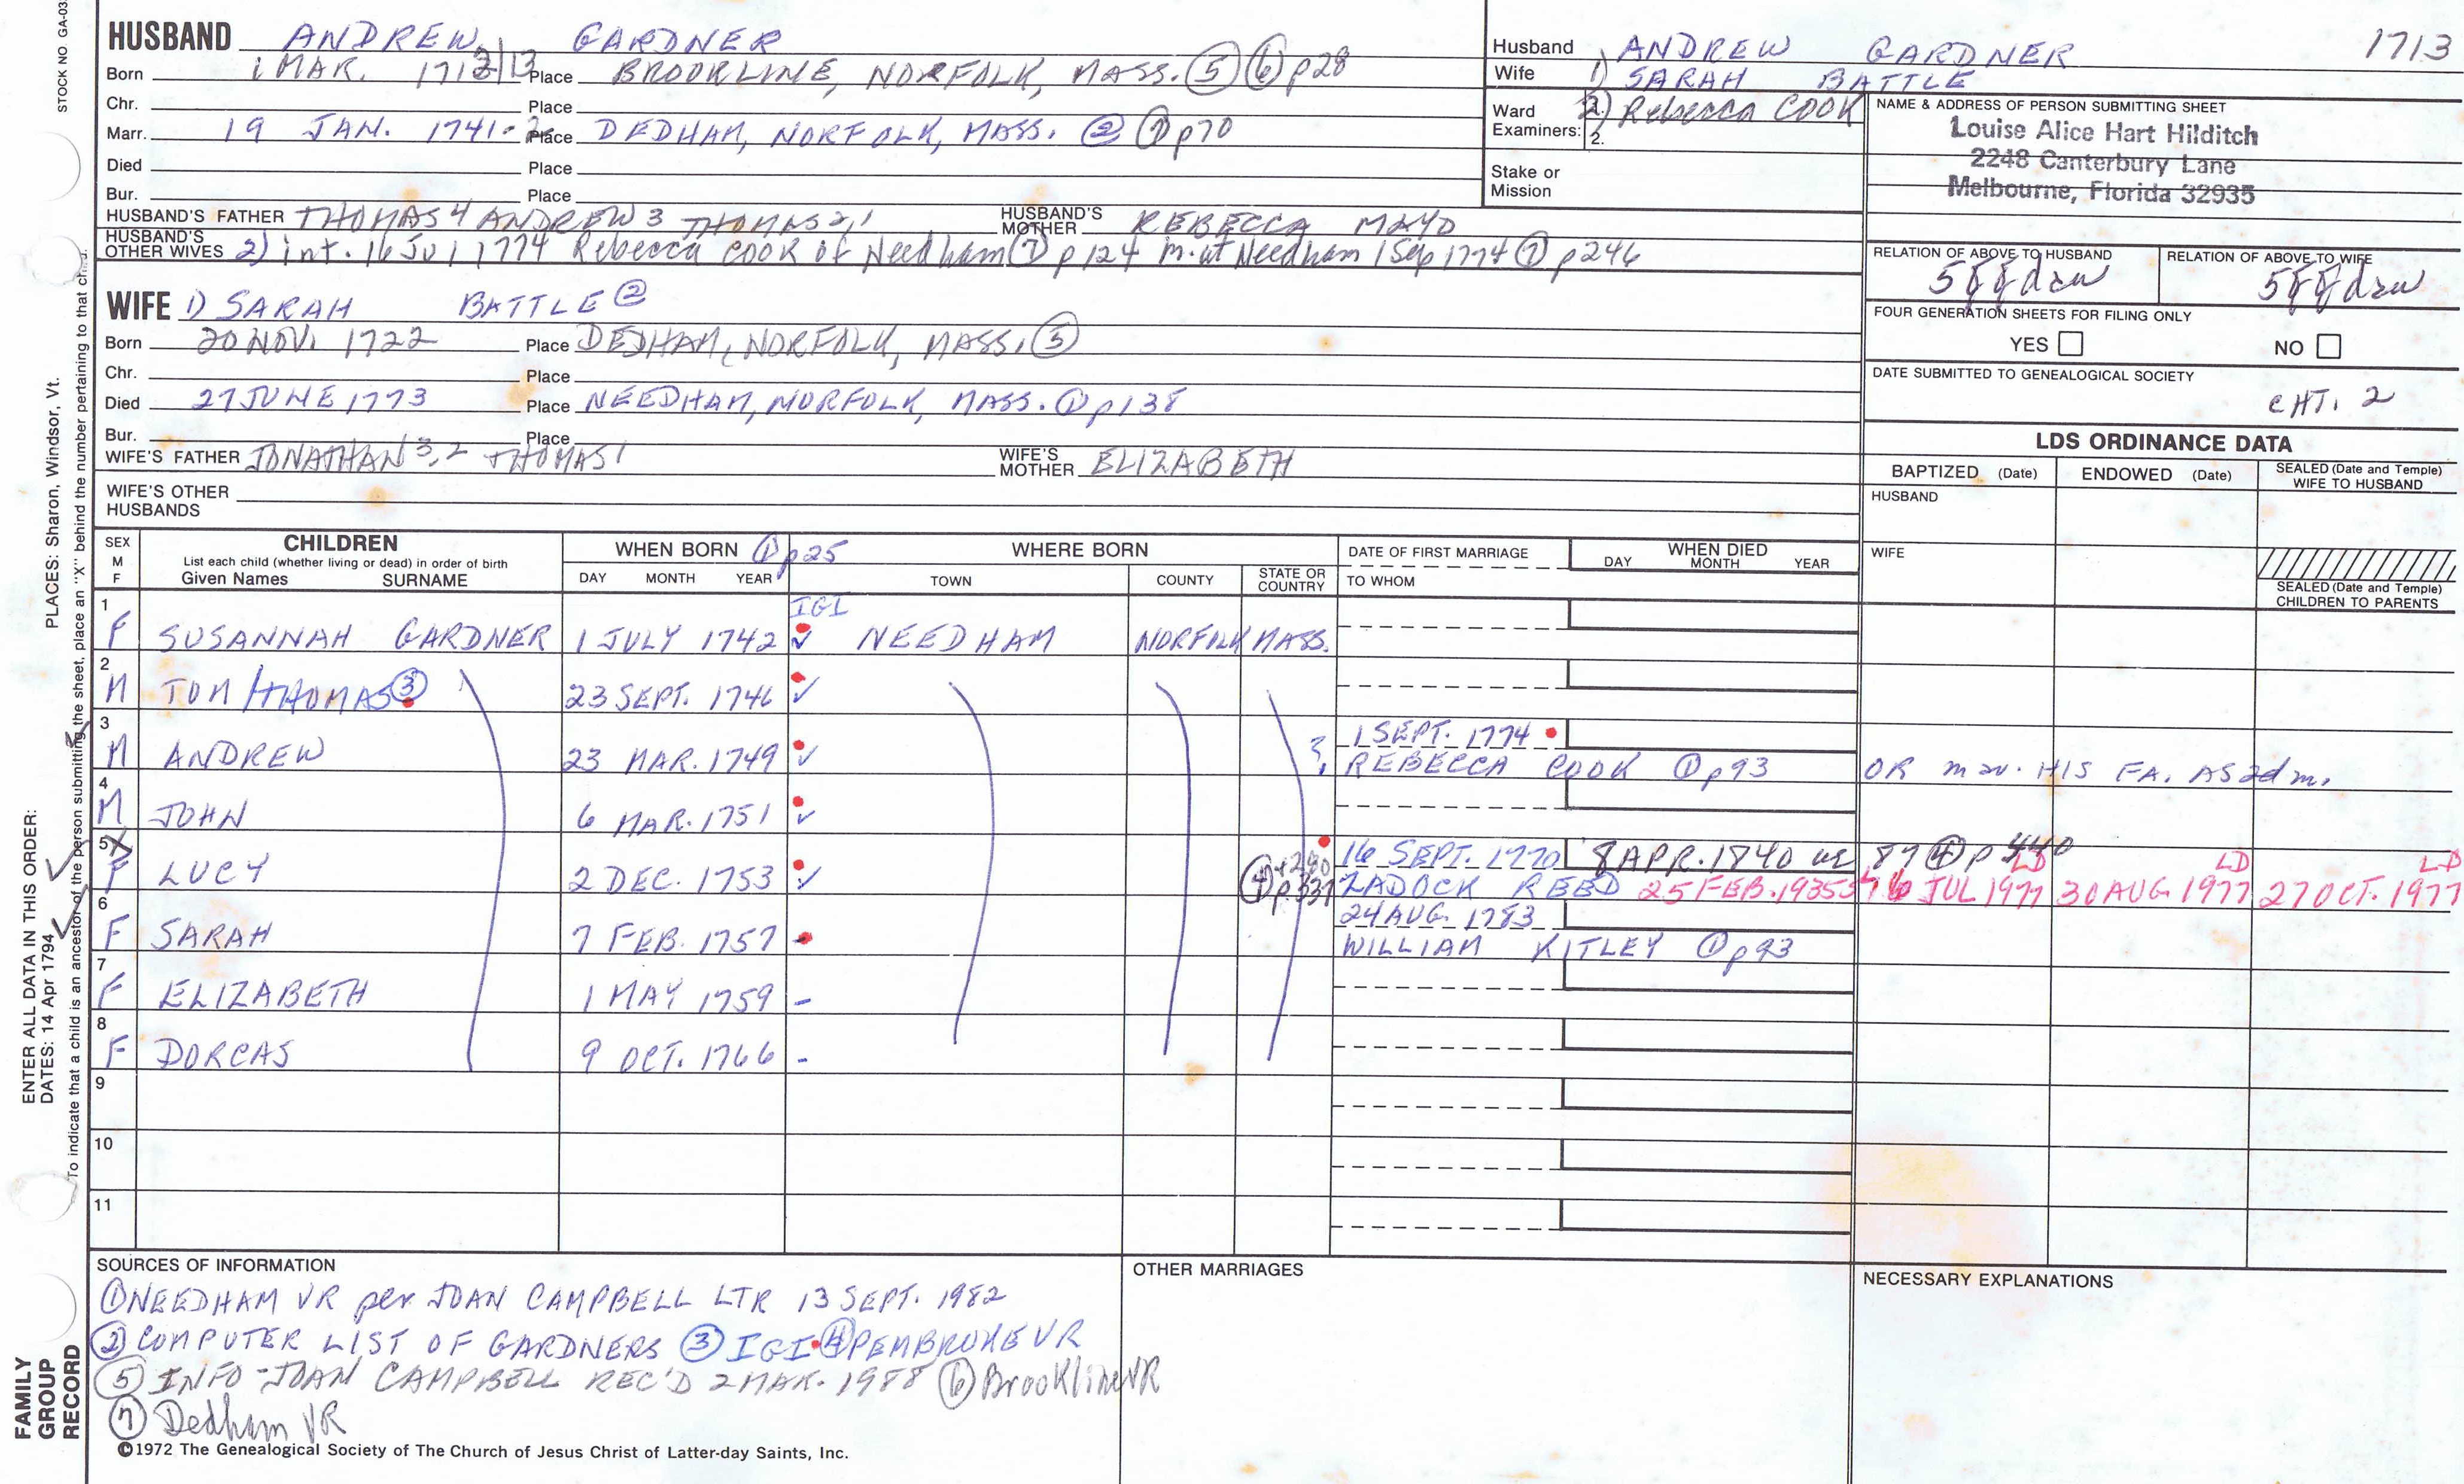 STOCK NO GA-03
HUSBAND ANDREW GARDNER
Born 1 MAR. 1712/13 Place BROOKLINE, NORFOLK, MASS. ⑤ ⑥ p28
Chr. Place
Marr. 19 JAN. 1741-2 Place DEDHAM, NORFOLK, MASS. ② ⑦ p70
Died Place
Bur. Place
HUSBAND'S FATHER THOMAS 4 ANDREW 3 THOMAS 2,1 HUSBAND'S MOTHER REBECCA MAYO
HUSBAND'S OTHER WIVES 2) int. 16 Jul 1774 Rebecca COOK of Needham ⑦ p124 m. at Needham 1 Sep 1774 ⑦ p246
WIFE 1) SARAH BATTLE ②
Born 20 NOV. 1722 Place DEDHAM, NORFOLK, MASS. ⑤
Chr. Place
Died 27 JUNE 1773 Place NEEDHAM, NORFOLK, MASS. ① p138
Bur. Place
WIFE'S FATHER JONATHAN 3,2 THOMAS 1 WIFE'S MOTHER ELIZABETH
WIFE'S OTHER HUSBANDS
Husband ANDREW GARDNER 1713
Wife 1) SARAH BATTLE
Ward Examiners: 2) Rebecca COOK
2.
Stake or Mission
NAME & ADDRESS OF PERSON SUBMITTING SHEET
Louise Alice Hart Hilditch
2248 Canterbury Lane
Melbourne, Florida 32935
RELATION OF ABOVE TO HUSBAND RELATION OF ABOVE TO WIFE
FOUR GENERATION SHEETS FOR FILING ONLY
YES NO
DATE SUBMITTED TO GENEALOGICAL SOCIETY
CHT. 2
LDS ORDINANCE DATA
BAPTIZED (Date) ENDOWED (Date) SEALED (Date and Temple) WIFE TO HUSBAND
HUSBAND
WIFE
SEALED (Date and Temple) CHILDREN TO PARENTS
SEX M F
CHILDREN
List each child (whether living or dead) in order of birth
Given Names SURNAME
WHEN BORN ① p25
DAY MONTH YEAR
WHERE BORN
TOWN COUNTY STATE OR COUNTRY
DATE OF FIRST MARRIAGE
TO WHOM
WHEN DIED
DAY MONTH YEAR
IGI
1 F SUSANNAH GARDNER 1 JULY 1742 ✓ NEEDHAM NORFOLK MASS.
2 M TOM/THOMAS ③ 23 SEPT. 1746 ✓
3 M ANDREW 23 MAR. 1749 ✓ 1 SEPT. 1774
REBECCA COOK ① p93 OR mar. HIS FA. AS 2d m.
4 M JOHN 6 MAR. 1751 ✓
5 X F LUCY 2 DEC. 1753 ✓ 16 SEPT. 1770 8 APR. 1840 ae 87 ④ p 440
④ p.337 ZADOCK REED 25 FEB. 1935 JUL 1977 LD 30 AUG 1977 LD 27 OCT. 1977 LD
6 F SARAH 7 FEB. 1757 - 24 AUG. 1783
WILLIAM KITLEY ① p93
7 F ELIZABETH 1 MAY 1759 -
8 F DORCAS 9 OCT. 1766 -
9
10
11
SOURCES OF INFORMATION
① NEEDHAM VR per JOAN CAMPBELL LTR 13 SEPT. 1982
② COMPUTER LIST OF GARDNERS ③ IGI ④ PEMBROKE VR
⑤ INFO-JOAN CAMPBELL REC'D 2 MAR. 1988 ⑥ Brookline VR
⑦ Dedham VR
OTHER MARRIAGES
NECESSARY EXPLANATIONS
©1972 The Genealogical Society of The Church of Jesus Christ of Latter-day Saints, Inc.
ENTER ALL DATA IN THIS ORDER:
DATES: 14 Apr 1794
PLACES: Sharon, Windsor, Vt.
To indicate that a child is an ancestor of the person submitting the sheet, place an "X" behind the number pertaining to that child.
FAMILY
GROUP
RECORD